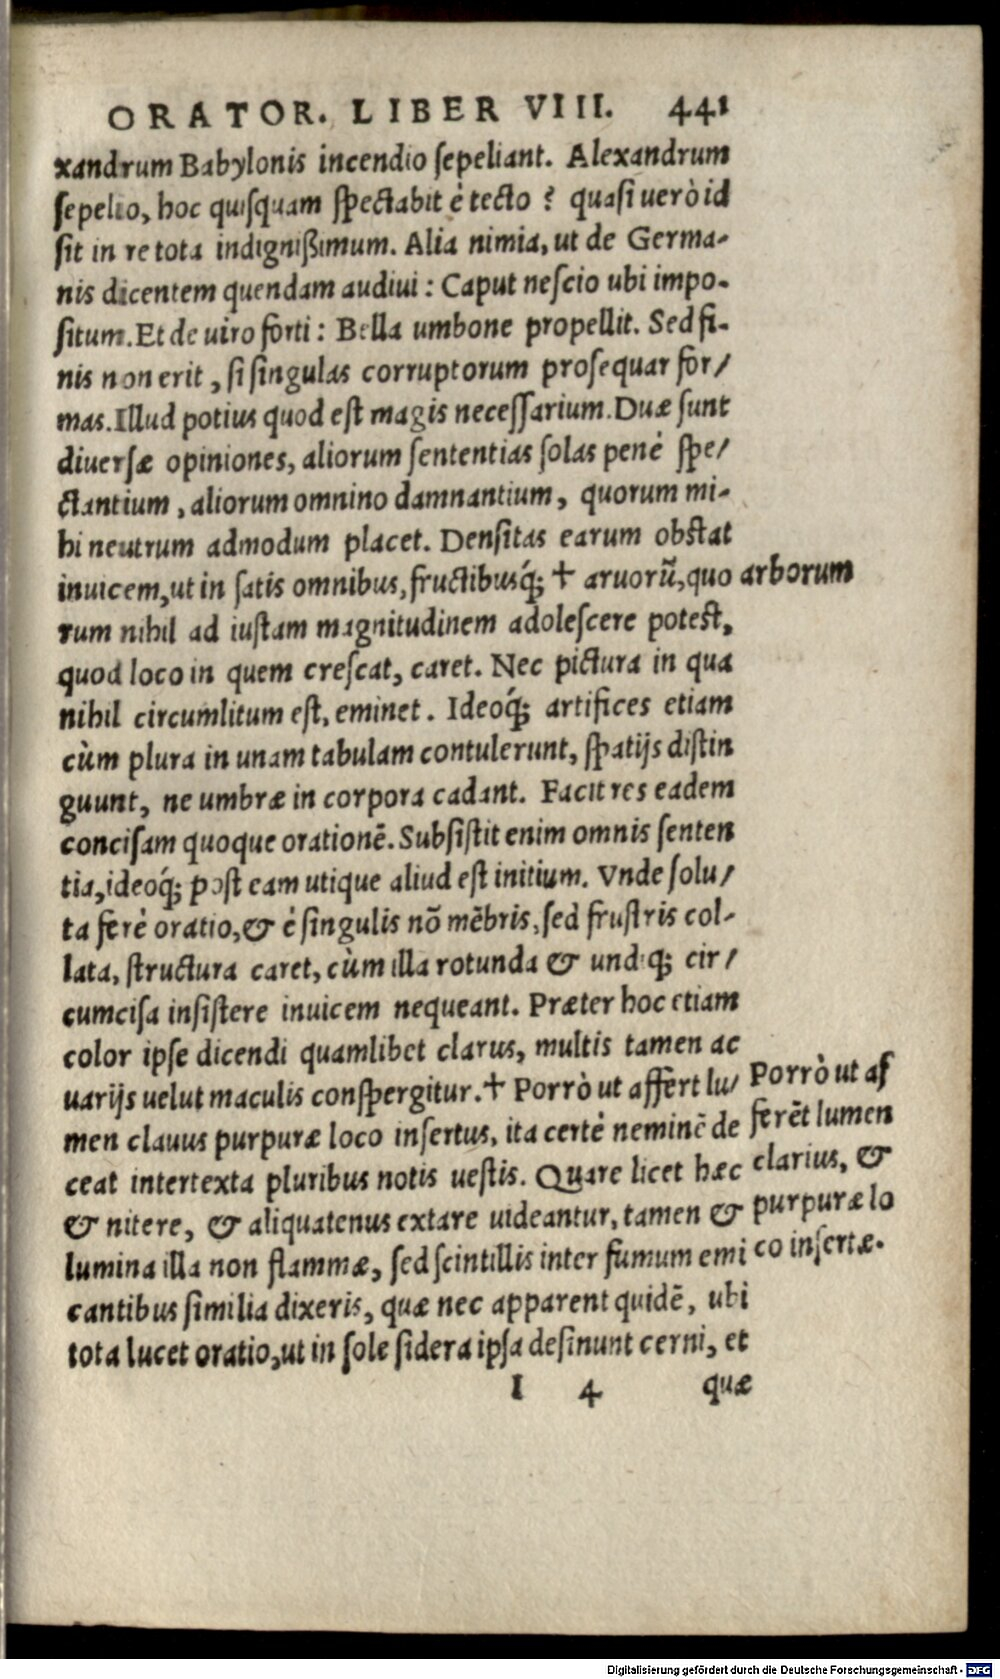 ORATOR. LIBER VIII. 441
xandrum Babylonis incendio ſepeliant. Alexandrum
ſepelio, hoc quiſquam ſpectabit è tecto ? quaſi uerò id
ſit in re tota indignißimum. Alia nimia, ut de Germa-
nis dicentem quendam audiui : Caput neſcio ubi impo-
ſitum. Et de uiro forti : Bella umbone propellit. Sed fi-
nis non erit, ſi ſingulas corruptorum proſequar for/
mas. Illud potius quod eſt magis neceſſarium. Duæ ſunt
diuerſæ opiniones, aliorum ſententias ſolas penè ſpe/
ctantium, aliorum omnino damnantium, quorum mi-
hi neutrum admodum placet. Denſitas earum obſtat
inuicem, ut in ſatis omnibus, fructibusq́; + aruorũ, quo
rum nihil ad iuſtam magnitudinem adoleſcere poteſt,
quod loco in quem creſcat, caret. Nec pictura in qua
nihil circumlitum eſt, eminet. Ideoq́; artifices etiam
cùm plura in unam tabulam contulerunt, ſpatijs diſtin
guunt, ne umbræ in corpora cadant. Facit res eadem
conciſam quoque orationē. Subſiſtit enim omnis ſenten
tia, ideoq́; poſt eam utique aliud eſt initium. Vnde ſolu/
ta ferè oratio, & è ſingulis nō mēbris, ſed fruſtris col-
lata, ſtructura caret, cùm illa rotunda & undiq; cir/
cumciſa inſiſtere inuicem nequeant. Præter hoc etiam
color ipſe dicendi quamlibet clarus, multis tamen ac
uarijs uelut maculis conſpergitur. + Porrò ut affert lu/
men clauus purpuræ loco inſertus, ita certè neminē de
ceat intertexta pluribus notis ueſtis. Quare licet hæc
& nitere, & aliquatenus extare uideantur, tamen &
lumina illa non flammæ, ſed ſcintillis inter fumum emi
cantibus ſimilia dixeris, quæ nec apparent quidē, ubi
tota lucet oratio, ut in ſole ſidera ipſa deſinunt cerni, et
I 4 quæ
arborum
Porrò ut aſ
ferēt lumen
clarius, &
purpuræ lo
co inſertæ.
Digitalisierung gefördert durch die Deutsche Forschungsgemeinschaft - DFG